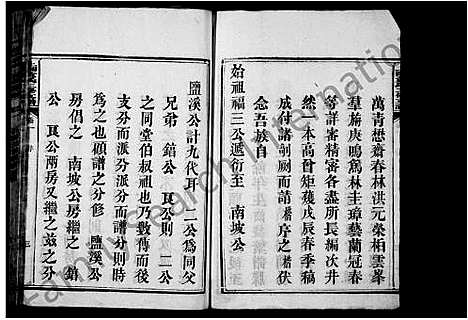 萬青想齋春林洪元榮相雲峯
羣蔴庚鳴篤林圭璋藝蘭冠春
等詳審精密各盡所長編次井
然一本高曾矩矱戊辰春季稿
成付諸剞劂而請榰序之榰伏
念吾族自
始祖福三公遞衍至 南坡公
鹽溪公計九代耳 二公為同父
兄弟 錯公 艮公則 二公
之同堂伯叔祖也乃數傳而後
支分而派分派分而譜分
為之也頎譜之分修 鹽溪公
房倡之 南坡公房繼之 錯
公 艮公兩房又繼之茲之分
FamilySearch International